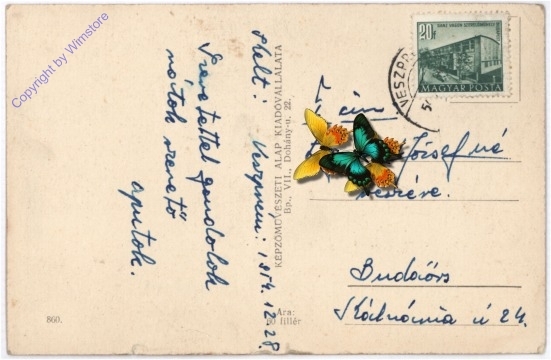 Copyright by Wimstore
Kelt: Veszprém: 1954.12.28.
Szeretettel gondolok
rátok szerető
apátok.
KÉPZŐMŰVÉSZETI ALAP KIADÓVÁLLALATA
Bp., VII., Dohány-u. 22.
860.
Ára:
60 fillér
20f
MAGYAR POSTA
VESZPR
cím
József né
részére.
Budaörs
Kálvária ú 24.